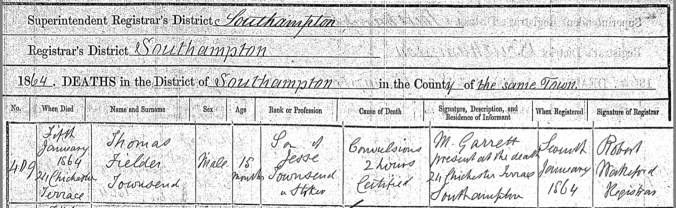 Superintendent Registrar's District Southampton
Registrar's District Southampton
1864. DEATHS in the District of Southampton in the County of the same Town.
No. When Died Name and Surname Sex Age Rank or Profession Cause of Death Signature, Description, and Residence of Informant When Registered Signature of Registrar
409
Fifth
January
1864
24 Chichester
Terrace
Thomas
Fielder
Townsend
Male
15
months
Son of
Jesse
Townsend
a Stoker
Convulsions
2 hours
Certified
M. Garrett
present at the death
24 Chichester Terrace
Southampton
Seventh
January
1864
Robert
Registrar